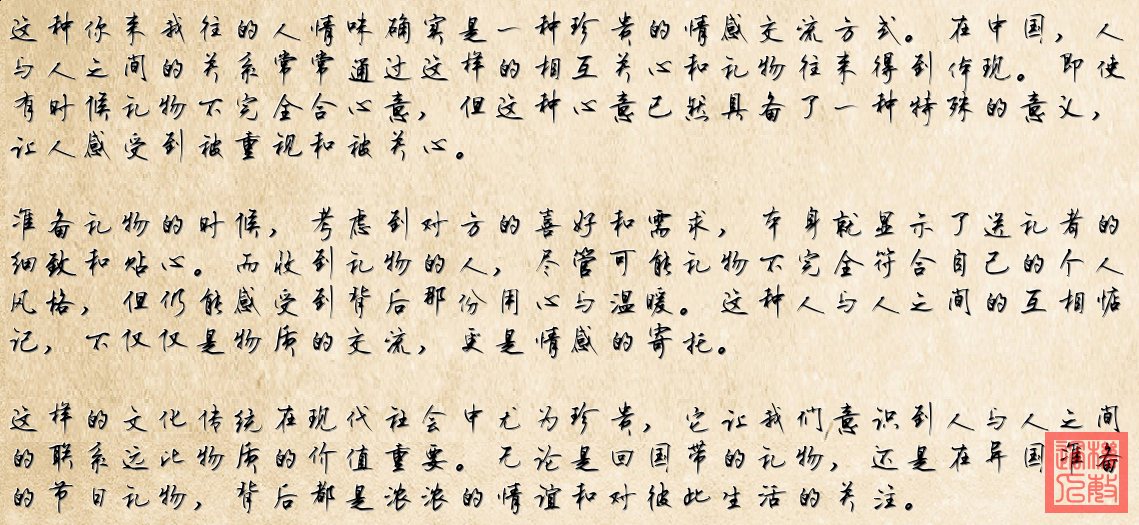 这种你来我往的人情味确实是一种珍贵的情感交流方式。在中国，人
与人之间的关系常常通过这样的相互关心和礼物往来得到体现。即使
有时候礼物不完全合心意，但这种心意已然具备了一种特殊的意义，
让人感受到被重视和被关心。
准备礼物的时候，考虑到对方的喜好和需求，本身就显示了送礼者的
细致和贴心。而收到礼物的人，尽管可能礼物不完全符合自己的个人
风格，但仍能感受到背后那份用心与温暖。这种人与人之间的互相惦
记，不仅仅是物质的交流，更是情感的寄托。
这样的文化传统在现代社会中尤为珍贵，它让我们意识到人与人之间
的联系远比物质的价值重要。无论是回国带的礼物，还是在异国准备
的节日礼物，背后都是浓浓的情谊和对彼此生活的关注。